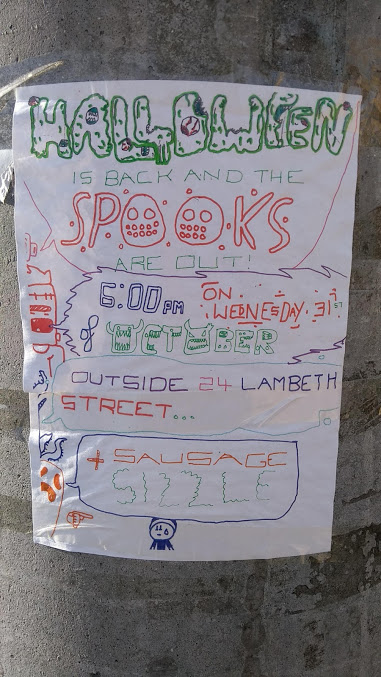 HALLOWEEN
IS BACK AND THE
SPOOKS
ARE OUT!
6:00 PM ON
WEDNESDAY 31ST
OF OCTOBER
OUTSIDE 24 LAMBETH
STREET...
+ SAUSAGE
SIZZLE